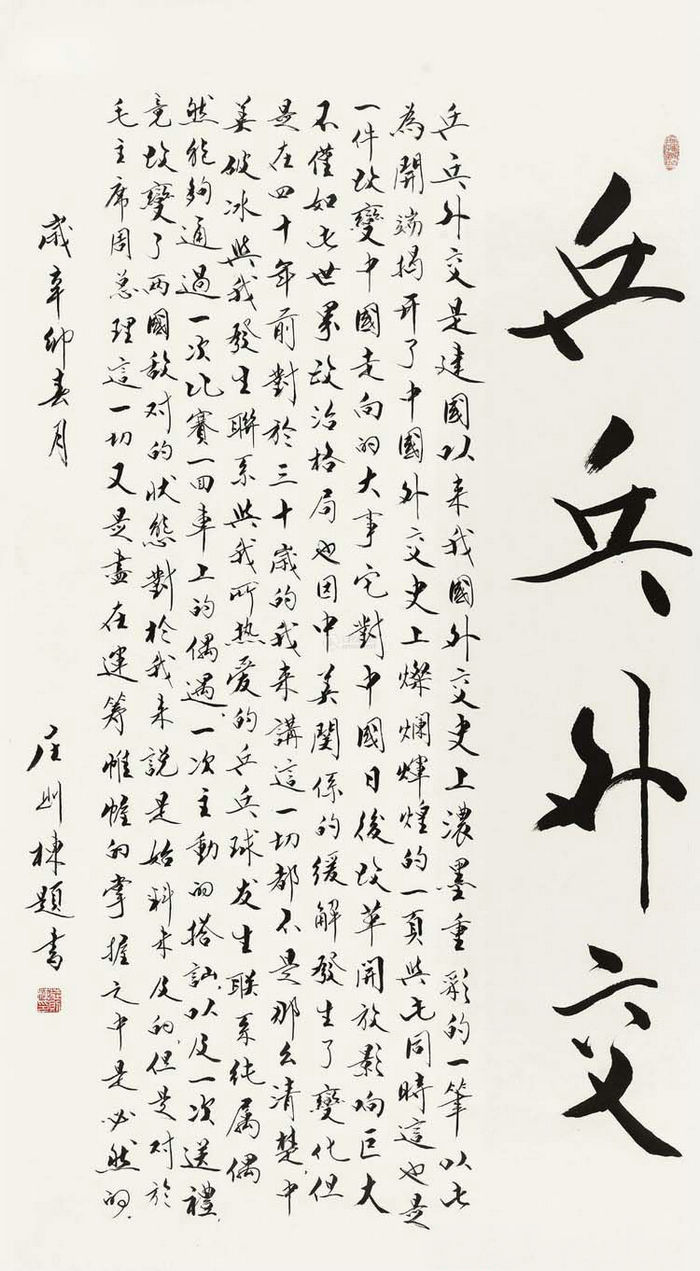 乒乓外交
乒乓外交是建國以来我國外交史上濃墨重彩的一筆以此
為開端揭开了中國外交史上燦爛輝煌的一頁與此同時這也是
一件改變中國走向的大事它對中國日後改革開放影响巨大
不僅如此世界政治格局也因中美関係的緩解發生了變化但
是在四十年前對於三十歲的我来講這一切都不是那么清楚中
美破冰與我發生聯系與我所热爱的乒乓球发生联系纯属偶
然能夠通過一次比賽一回車上的偶遇一次主動的搭訕以及一次送禮
竟改變了两國敌对的状態對於我来説是始料未及的但是对於
毛主席周总理這一切又是盡在運筹帷幄的掌握之中是必然的
歲辛卯春月
庄则棟題書